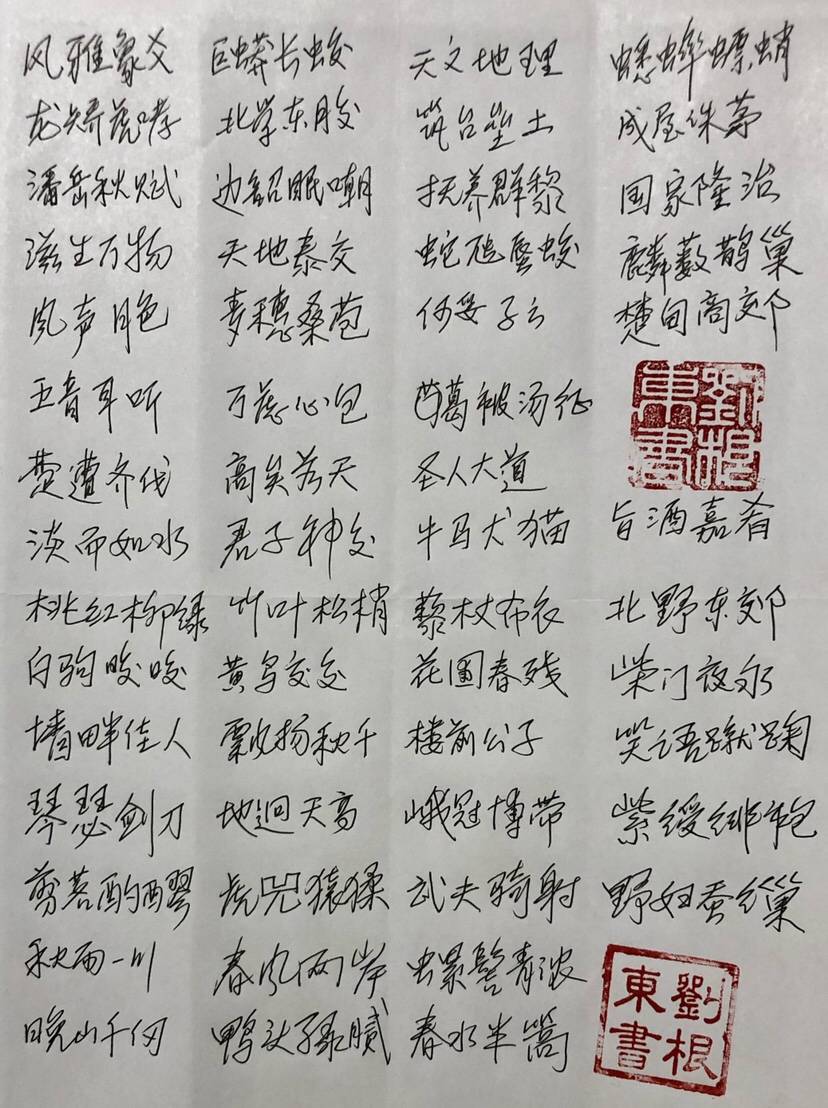 风雅象爻 巨蟒长蛟 天文地理 蟋蟀螵蛸
龙矫虎哮 北学东胶 筑台垒土 成屋诛茅
潘岳秋赋 边韶眠嘲 抚养群黎 国家隆治
滋生万物 天地泰交 蛇虺蜃蛟 麟薮鹊巢
风声月色 麦穗桑苞 何妥子云 楚甸商郊
五音耳听 万虑心包 葛被汤征
楚遭齐伐 高矣若天 圣人大道
劉根東書
淡而如水 君子神交 牛马犬猫 旨酒嘉肴
桃红柳绿 竹叶松梢 藜杖布衣 北野东郊
白驹皎皎 黄鸟交交 花圃春残 柴门夜永
墙畔佳人 飘扬秋千 楼前公子 笑语蹴鞠
琴瑟剑刀 地迥天高 峨冠博带 紫绶绯袍
茗酌醪 虎兕猿猱 武夫骑射 野妇蚕缫
秋雨一川 春风两岸 螺髻青浓
晚山千仞 鸭头绿腻 春水半篙
劉根東書